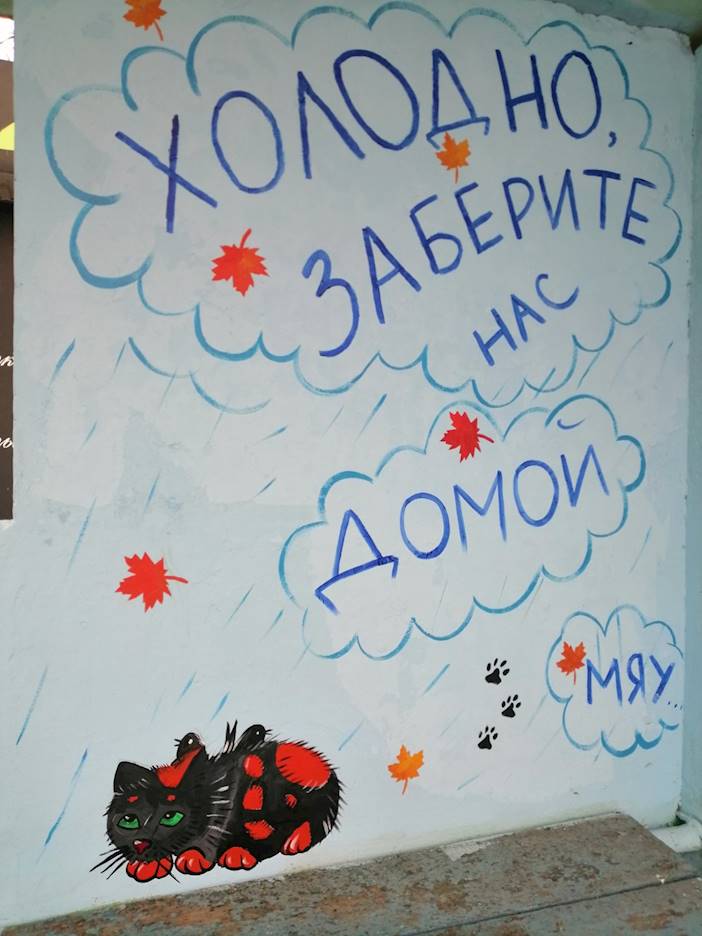 ХОЛОДНО,
ЗАБЕРИТЕ
НАС
ДОМОЙ
МЯУ...